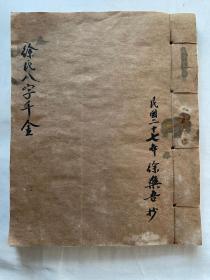 徐氏八字千金
民國二十七年 徐樂吾抄